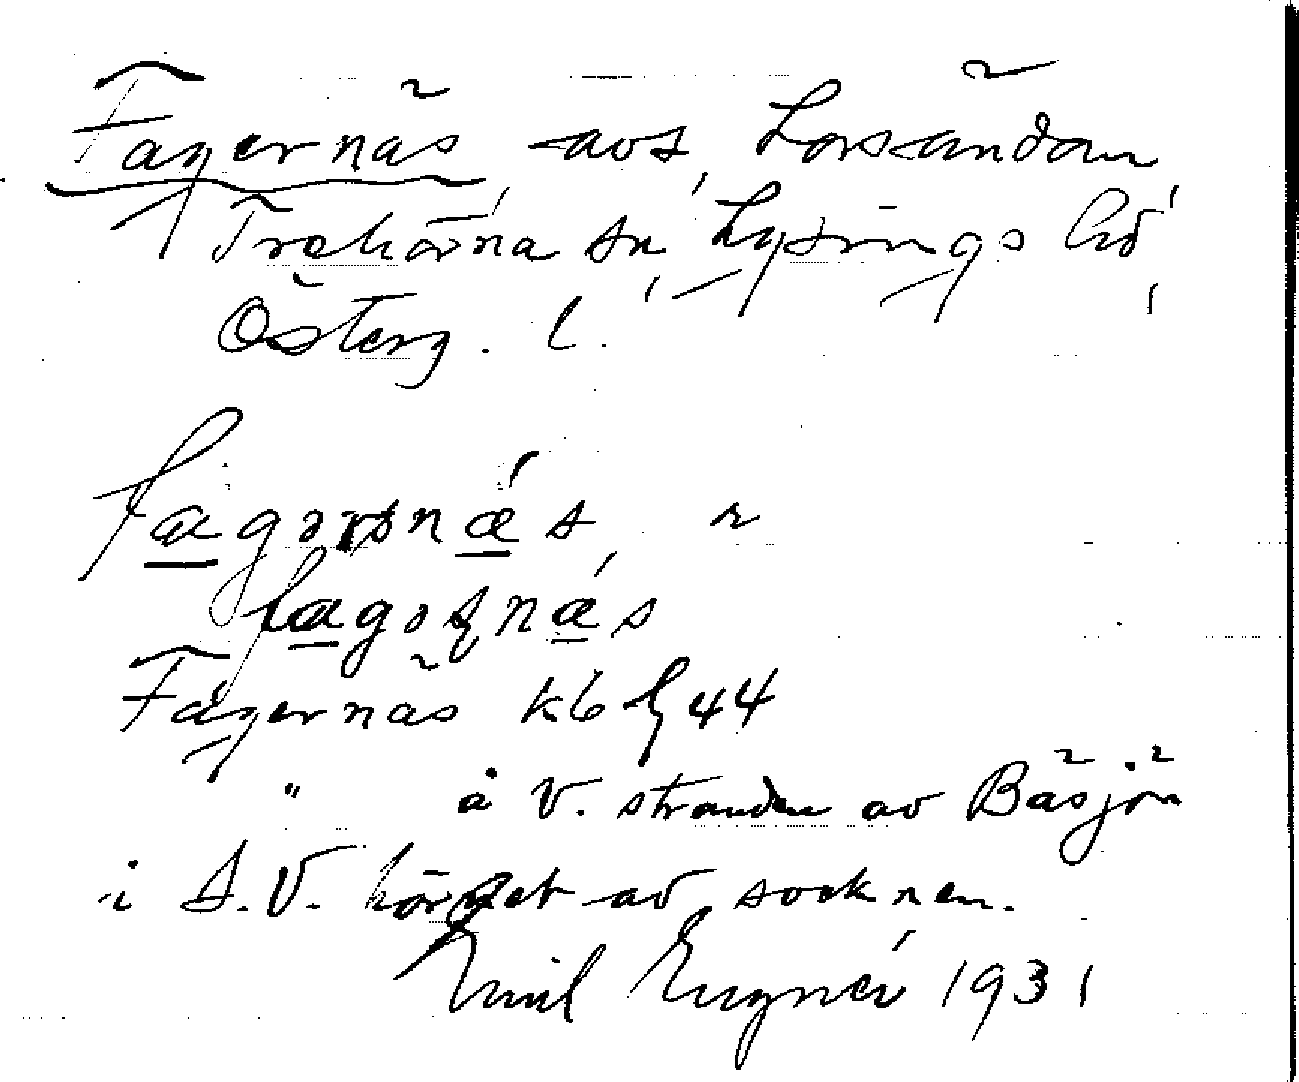 Fagernäs avs, Lorsändan,
Trehörna sn, Lysings hd,
Österg. l.
fagərsnæ´s ~
fagəʂnæ´s
Fagernäs kb 44
" å V. stranden av Båsjön
i S.V. hörnet av socknen.
Emil Eugnér 1931